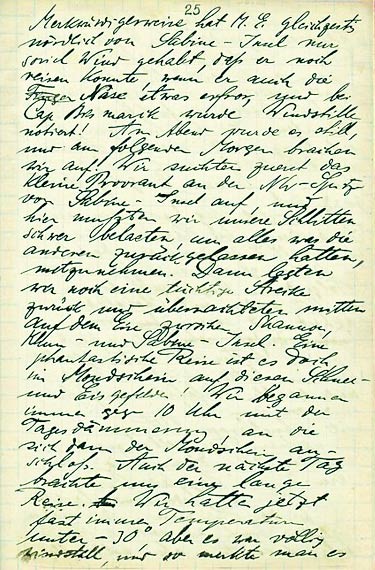 25
Merkwürdigerweise hat M. E. gleichzeitig
nördlich von Sabine-Insel nur
soviel Wind gehabt, daß er noch
reisen konnte, wenn er auch die
Nase etwas erfror, und bei
Cap Bismarck wurde Windstille
notiert! Am Abend wurde es still
und am folgenden Morgen brachen
wir auf. Wir suchten zuerst das
kleine Proviant an der NW-Spitze
von Sabine-Insel auf und
hier mußten wir unsere Schlitten
schwer belasten, um alles was die
anderen zurückgelassen hatten,
mitzunehmen. Dann legten
wir noch eine tüchtige Strecke
zurück und übernachteten mitten
auf dem Eise zwischen Shannon,
Kuhn- und Sabine-Insel. Eine
phantastische Reise ist es doch,
im Mondschein auf diesen Schnee-
und Eisgefilden! Wir begannen
immer gegen 10 Uhr mit der
Tagesdämmerung an die
sich dann der Mondschein an-
schloß. Auch der nächste Tag
brachte uns eine lange
Reise. Wir hatten jetzt
fast immer Temperaturen
unter -30° aber es war völlig
windstill, und so merkte man es